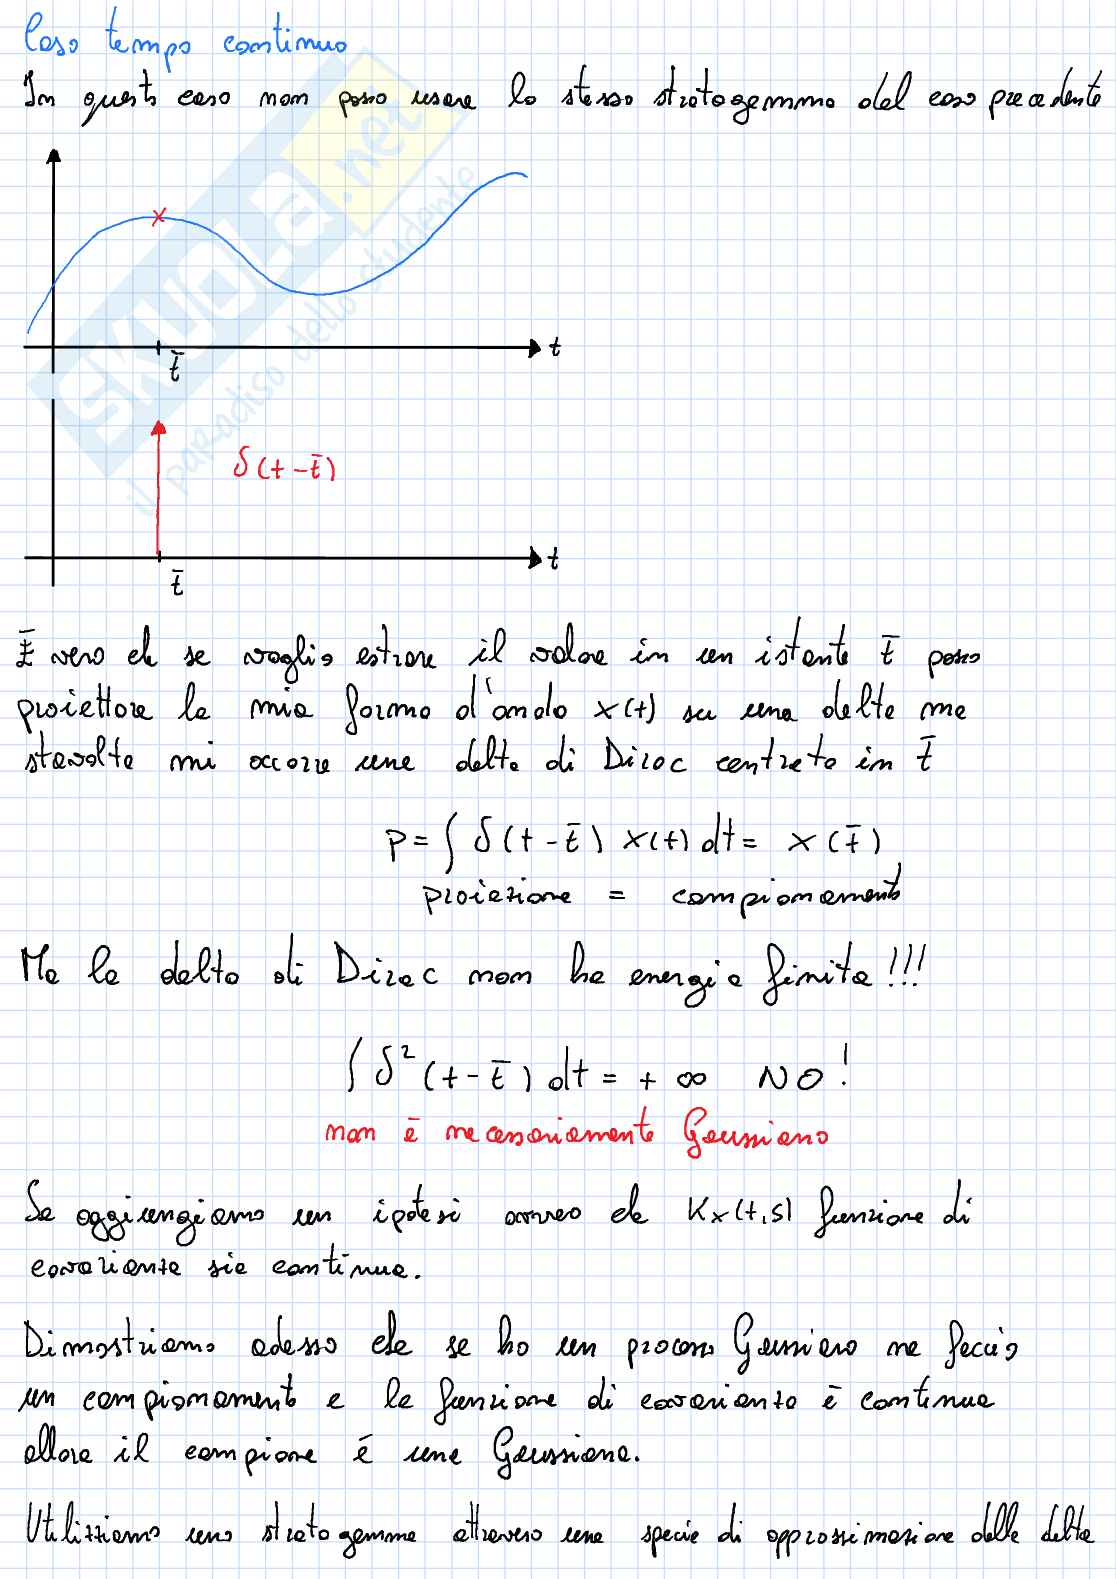 Caso tempo continuo
In questo caso non posso usare lo stesso stratagemma del caso precedente
SKUOLA.net
il paradiso dello studente
t
t̄
δ(t-t̄)
t
t̄
È vero che se voglio estrarre il valore in un istante t̄ posso
proiettare la mia forma d'onda x(t) su una delta ma
stavolta mi occorre una delta di Dirac centrata in t̄
p = ∫ δ(t-t̄) x(t) dt = x(t̄)
proiezione = campionamento
Ma la delta di Dirac non ha energia finita!!!
∫ δ²(t-t̄) dt = +∞ NO!
non è necessariamente Gaussiano
Se aggiungiamo un ipotesi ovvero che Kx(t,s) funzione di
covarianza sia continua.
Dimostriamo adesso che se ho un processo Gaussiano ne faccio
un campionamento e la funzione di covarianza è continua
allora il campione è una Gaussiana.
Utilizziamo uno stratagemma attraverso una specie di approssimazione della delta